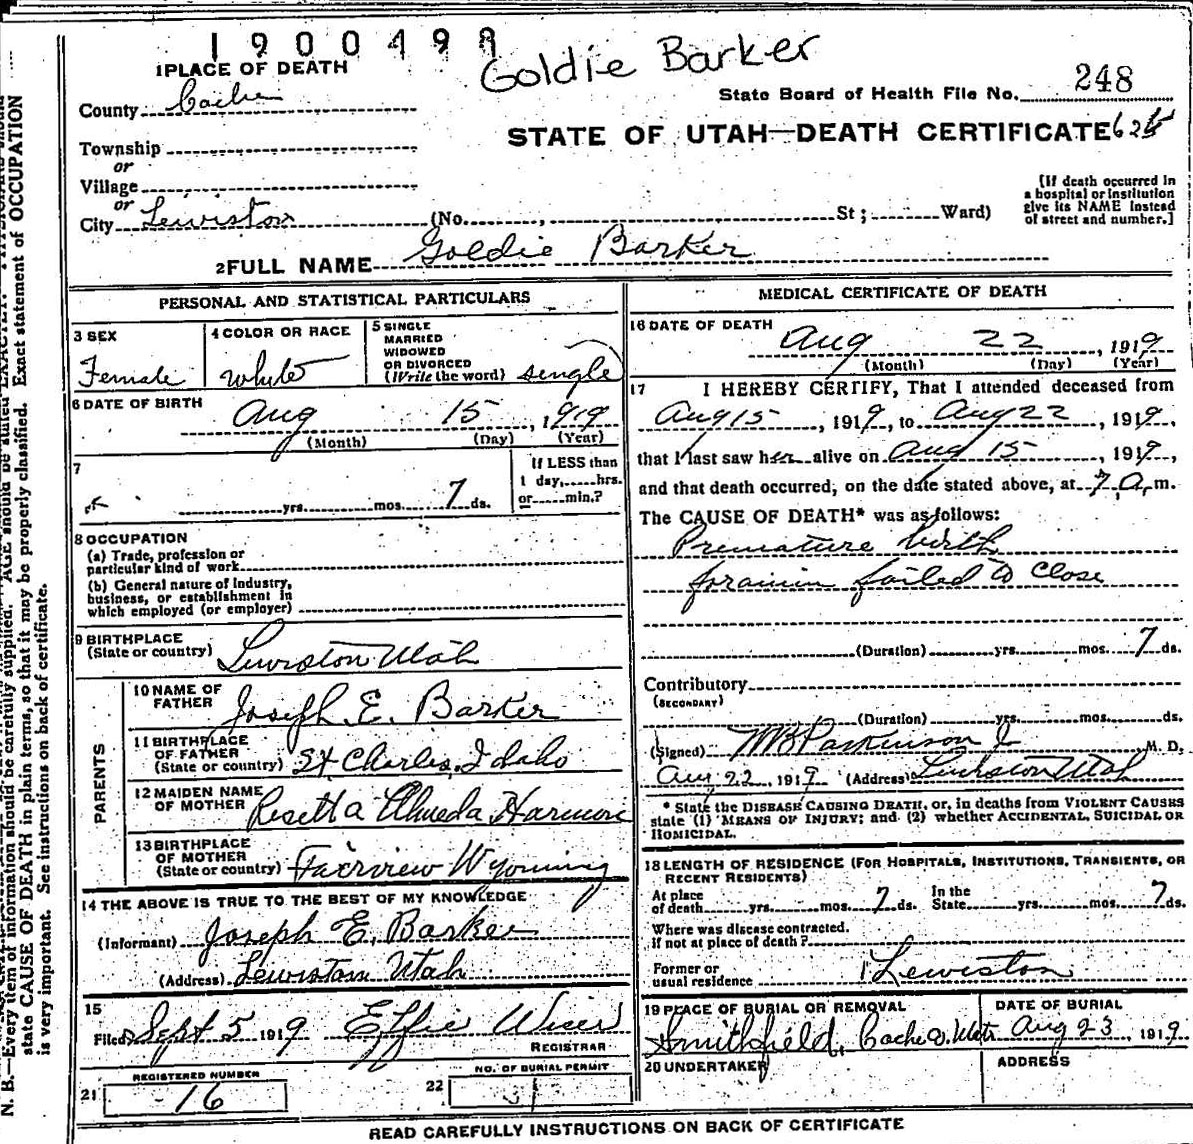 1900499
Goldie Barker
1 PLACE OF DEATH
County Cache
State Board of Health File No. 248
Township
or
Village
or
City Lewiston (No. , St; Ward)
STATE OF UTAH—DEATH CERTIFICATE
[If death occurred in
a hospital or institution
give its NAME instead
of street and number.]
2 FULL NAME Goldie Barker
PERSONAL AND STATISTICAL PARTICULARS
3 SEX
Female
4 COLOR OR RACE
White
5 SINGLE
MARRIED
WIDOWED
OR DIVORCED
(Write the word) single
6 DATE OF BIRTH
Aug 15, 1919
(Month) (Day) (Year)
7
yrs. mos. 7 ds.
If LESS than
1 day, hrs.
or min.?
8 OCCUPATION
(a) Trade, profession or
particular kind of work
(b) General nature of Industry,
business, or establishment in
which employed (or employer)
9 BIRTHPLACE
(State or country) Lewiston Utah
PARENTS
10 NAME OF
FATHER Joseph E. Barker
11 BIRTHPLACE
OF FATHER
(State or country) St Charles, Idaho
12 MAIDEN NAME
OF MOTHER Rosetta Almeda Harmon
13 BIRTHPLACE
OF MOTHER
(State or country) Fairview Wyoming
14 THE ABOVE IS TRUE TO THE BEST OF MY KNOWLEDGE
(Informant) Joseph E. Barker
(Address) Lewiston Utah
15
Filed Sept 5 1919 Effie
REGISTRAR
REGISTERED NUMBER
21 16
NO. OF BURIAL PERMIT
22
MEDICAL CERTIFICATE OF DEATH
16 DATE OF DEATH
Aug 22, 1919
(Month) (Day) (Year)
17 I HEREBY CERTIFY, That I attended deceased from
Aug 15, 1919, to Aug 22, 1919,
that I last saw her alive on Aug 15, 1919,
and that death occurred, on the date stated above, at 7 A. m.
The CAUSE OF DEATH* was as follows:
Premature birth
foramin failed to close
(Duration) yrs. mos. 7 ds.
Contributory
(SECONDARY)
(Duration) yrs. mos. ds.
(Signed) W B Parkinson Jr M. D.
Aug 22 1919 (Address) Lewiston Utah
* State the DISEASE CAUSING DEATH, or, in deaths from VIOLENT CAUSES
state (1) MEANS OF INJURY; and (2) whether ACCIDENTAL, SUICIDAL OR
HOMICIDAL.
18 LENGTH OF RESIDENCE (FOR HOSPITALS, INSTITUTIONS, TRANSIENTS, OR
RECENT RESIDENTS)
At place
of death yrs. mos. 7 ds.
In the
State yrs. mos. 7 ds.
Where was disease contracted.
if not at place of death?
Former or
usual residence Lewiston
19 PLACE OF BURIAL OR REMOVAL
Smithfield, Cache Co. Utah
DATE OF BURIAL
Aug 23, 1919.
20 UNDERTAKER
ADDRESS
READ CAREFULLY INSTRUCTIONS ON BACK OF CERTIFICATE
N. B.—Every item of information should be carefully supplied. AGE should be stated EXACTLY.
state CAUSE OF DEATH in plain terms, so that it may be properly classified. Exact statement of OCCUPATION
is very important. See instructions on back of certificate.